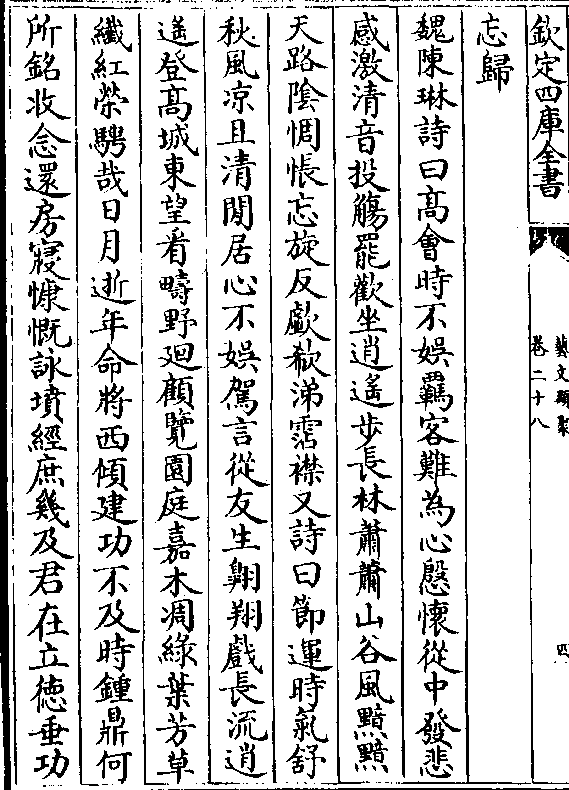 欽定四庫全書
藝文類聚
卷二十八
四
忘歸
魏陳琳詩曰髙會時不娯羈客難為心慇懷從中發悲
感激清音投觴罷歡坐逍遙步長林蕭蕭山谷風黯黯
天路隂惆悵忘旋反歔欷涕霑襟又詩曰節運時氣舒
秋風凉且清閒居心不娯駕言從友生翺翔戲長流逍
遙登髙城東望看疇野廻顧覽園庭嘉木凋綠葉芳草
纖紅榮騁哉日月逝年命將西傾建功不及時鍾鼎何
所銘收念還房寢慷慨詠墳經庶幾及君在立徳垂功